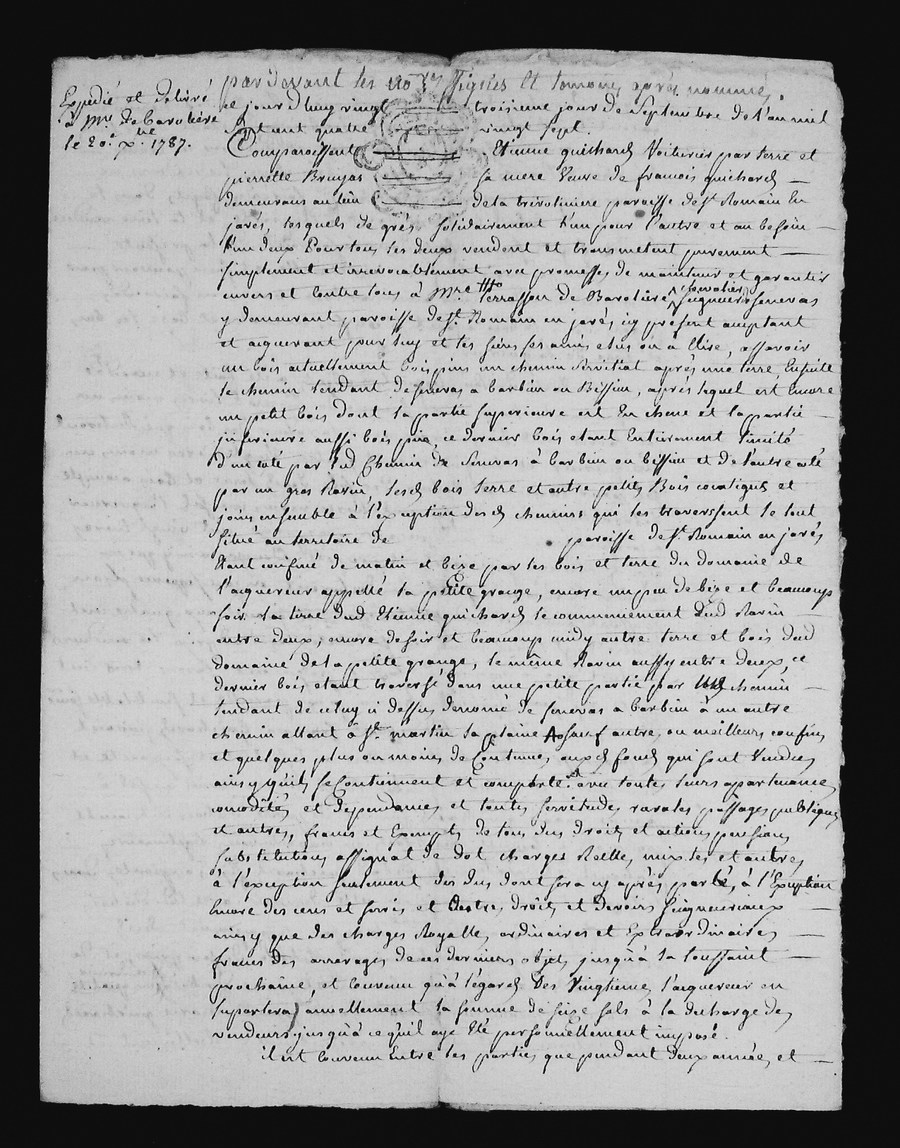 Expedié et delivré
à Mr. De Barolière
le 20e. Xbre 1787.
par devant les nores. signés et temoins après nommés
ce jour d'huy vingt troisieme jour de Septembre de l'an mil
sept cent quatre vingt sept.
Comparoissent Etienne guichard Voiturier par terre et
pierrette Brujas sa mere Veuve de francois guichard
demeurans au lieu de la trivoliniere paroisse de St. Romain En
jarés, lesquels de grés solidairement l'un pour l'autre et au besoin
l'un deux Pour tous les deux vendent et transmetent purement
simplement et irrevocablement avec promesses de maintenir et garantir
envers et Contre tous à Mre. terrasson de Barolière, chevalier Seigneur de senevas
y demeurant paroisse de St. Romain en jarés icy présent acceptant
et acquerant pour luy et les siens ses amis elus ou à Elire, assavoir
un bois actuellement bois pins un chemin servitial après une terre, Ensuite
le chemin tendant de senevas a barbin ou Bissieu, après lequel est Encore
un petit bois dont la partie superieure est En chene et la partie
inferieure aussi bois pins, ce dernier bois etant Entierement limité
d'un coté par ledt Chemin de Senevas à barbieu ou bissieu et de l'autre coté
par un gros Ravin, lesd. bois terre et autre petits Bois contigus et
joins ensemble à l'exception desd. chemins qui les traversent le tout
situé au territoire de paroisse de St. Romain en jarés
Etant confiné de matin et bize par les bois et terre du domaine de
l'acquereur appellé la petite grange, encore un peu de bize et beaucoup
soir la terre dud. Etienne guichard le communement dud. Ravin
entre deux; encore de soir et beaucoup midy autre terre et bois dud.
domaine de la petite grange, le même Ravin aussy entre deux, ce
dernier bois etant traversé dans une petite partie par chemin
tendant de celuy ci dessus denomé de senevas a barbieu à un autre
chemin allant à St. martin la plaine sauf autre, ou meilleurs confins
et quelques plus ou moins de Contenue auxd. fonds qui sont Vendus
ainsy qu'ils se Contiennent et comporte avec toutes leurs apartenances
comodités, et dépendances et toutes servitudes rurales passages publiques
et autres, francs et Exempts de tous dus droits et actions pensions
substitutions assignat de dot charges Reelles mixtes et autres
à l'exception seulement des dus dont sera cy après parlé, à l'Exception
Encore des cens et servis et autres droits et Devoirs seigneuriaux
ainsy que des charges Royalles, ordinaires et Extraordinaires
francs des arrerages de ces derniers objets jusqu'à la toussaint
prochaine, et convenu qu'à l'égard des Vingtiemes l'acquereur en
suportera annuellement la somme de seize sols à la decharge des
vendeurs jusqu'à ce qu'il aye Eté personnellement imposé.
il est Convenu Entre les parties que pendant deux années, et